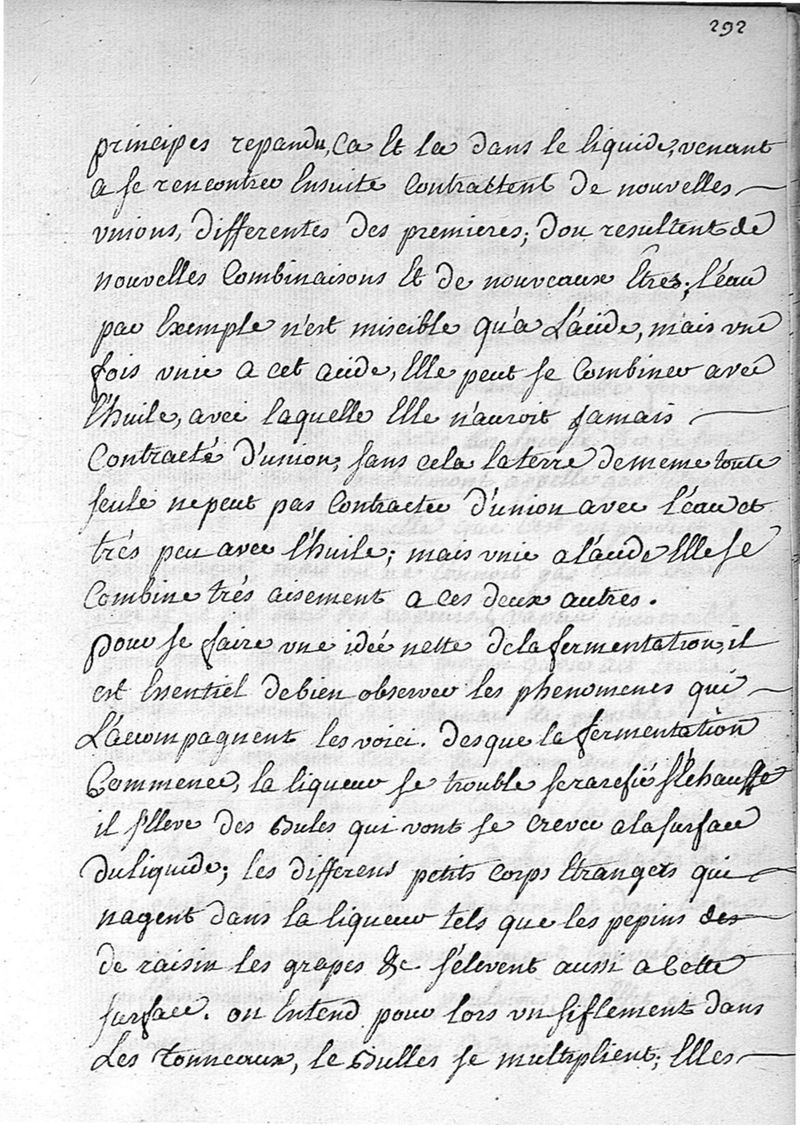 292
principes repandu, Ca Et la dans le liquide, venant
a se rencontrer Ensuite Contrattent de nouvelles
vnions, differentes des premieres; dou resultent de
nouvelles Combinaisons Et de nouveaux Etres; l'éau
par Exemple n'est miscible qu'a L'acide, mais vne
fois vnie a cet acide, Elle peut se Combiner avec
l'huile, avec laquelle Elle n'auroit jamais
Contracté d'union; sans cela la terre de meme toute
seule ne peut pas Contracter d'union avec l'éau et
trés peu avec l'huile; mais vnie a l'acide Elle se
Combine trés aisement a ces deux autres.
pour se faire vne idée nette de la fermentation, il
est Essentiel de bien observer les phenomenes qui
L'accompagnent les voici. des que la fermentation
Commence, la liqueur se trouble se rarefie s'Echauffe
il s'Eleve des Bules qui vont se crever a la surface
du liquide; les differens petits Corps Etrangers qui
nagent dans la liqueur tels que les pepins des
de raisin les grapes &c. s'élevent aussi a Cette
surface. on Entend pour lors vn siflement dans
Les Tonneaux, le Bulles se multiplient; Elles